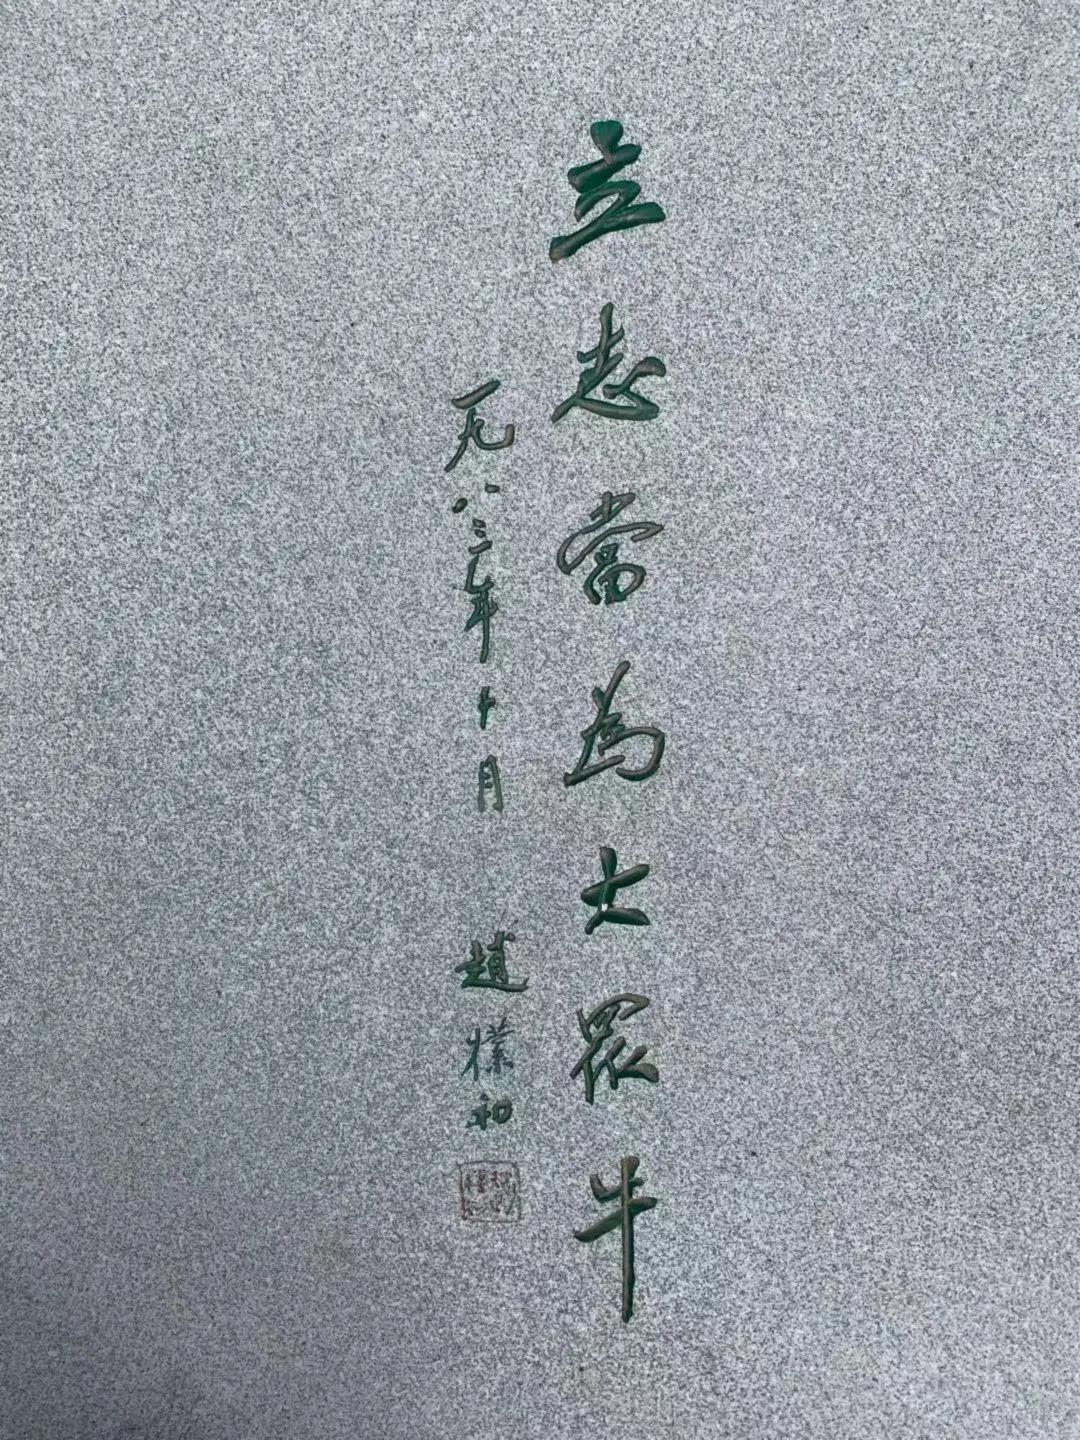 立志當為大眾牛
一九八三年十月 趙樸初